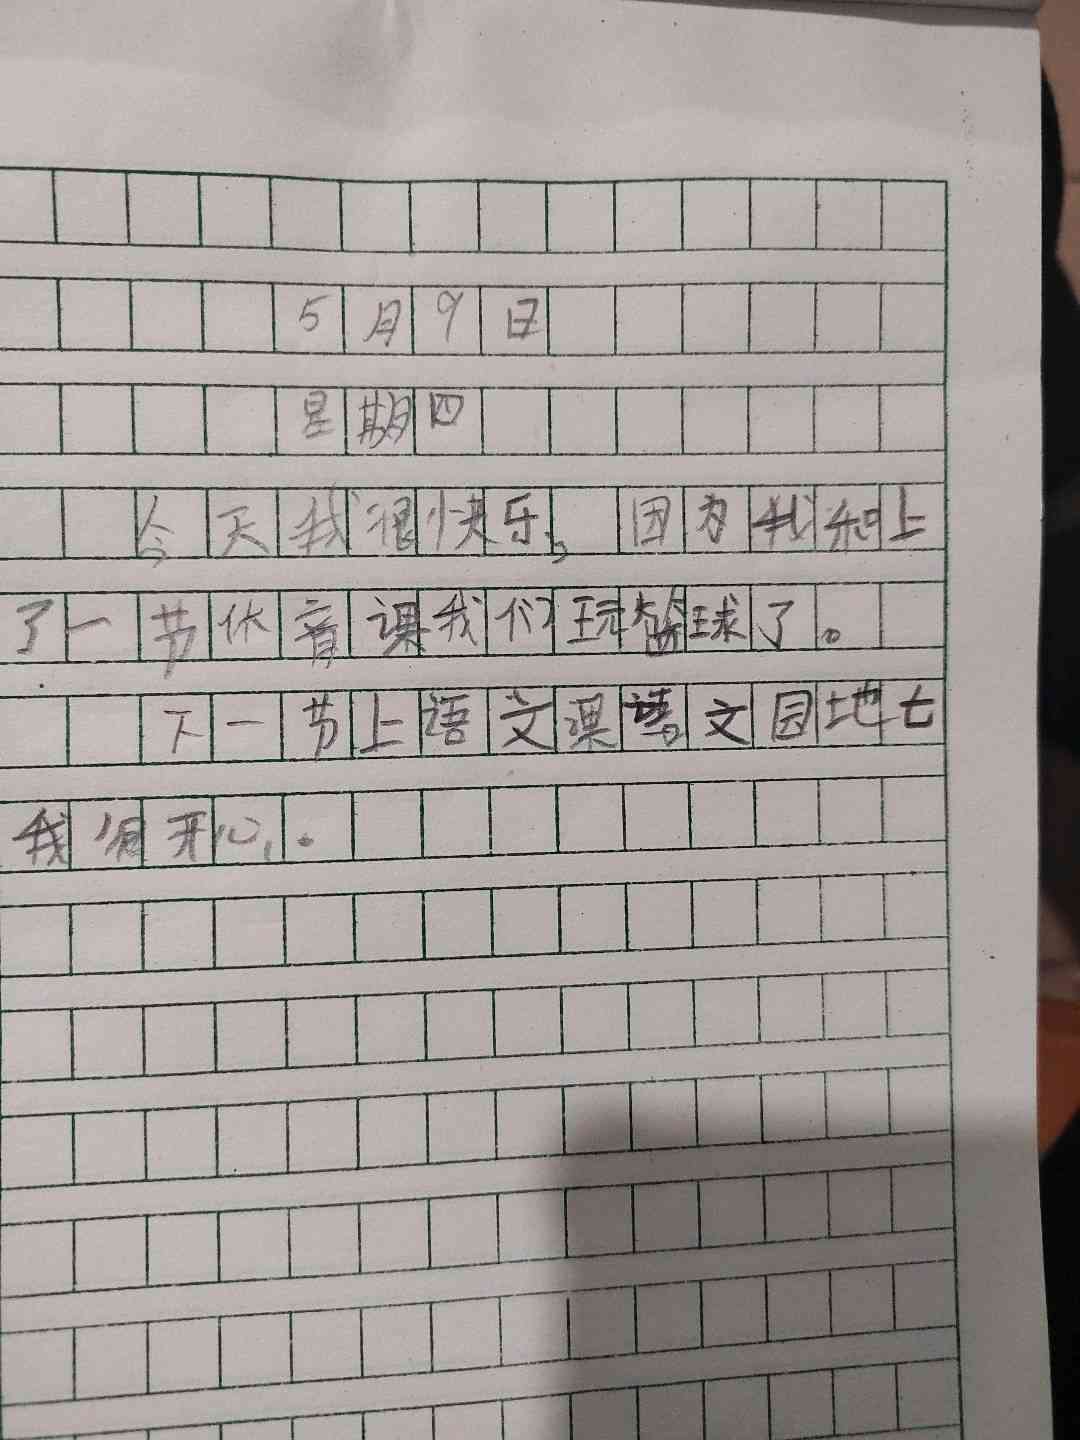 5月9日
星期四
今天我很快乐,因为我和上
了一节体育课我们玩球了。
下一节上语文课语文园地七
我很开心.